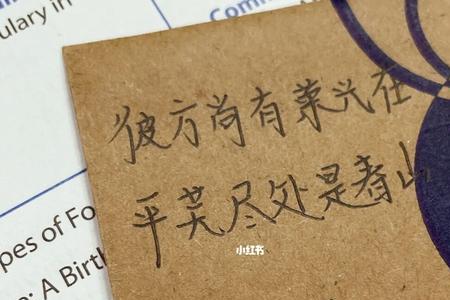 ulary in
彼方尚有荣光在
平芜尽处是春山
pes of Fo
: A Birth
小红书